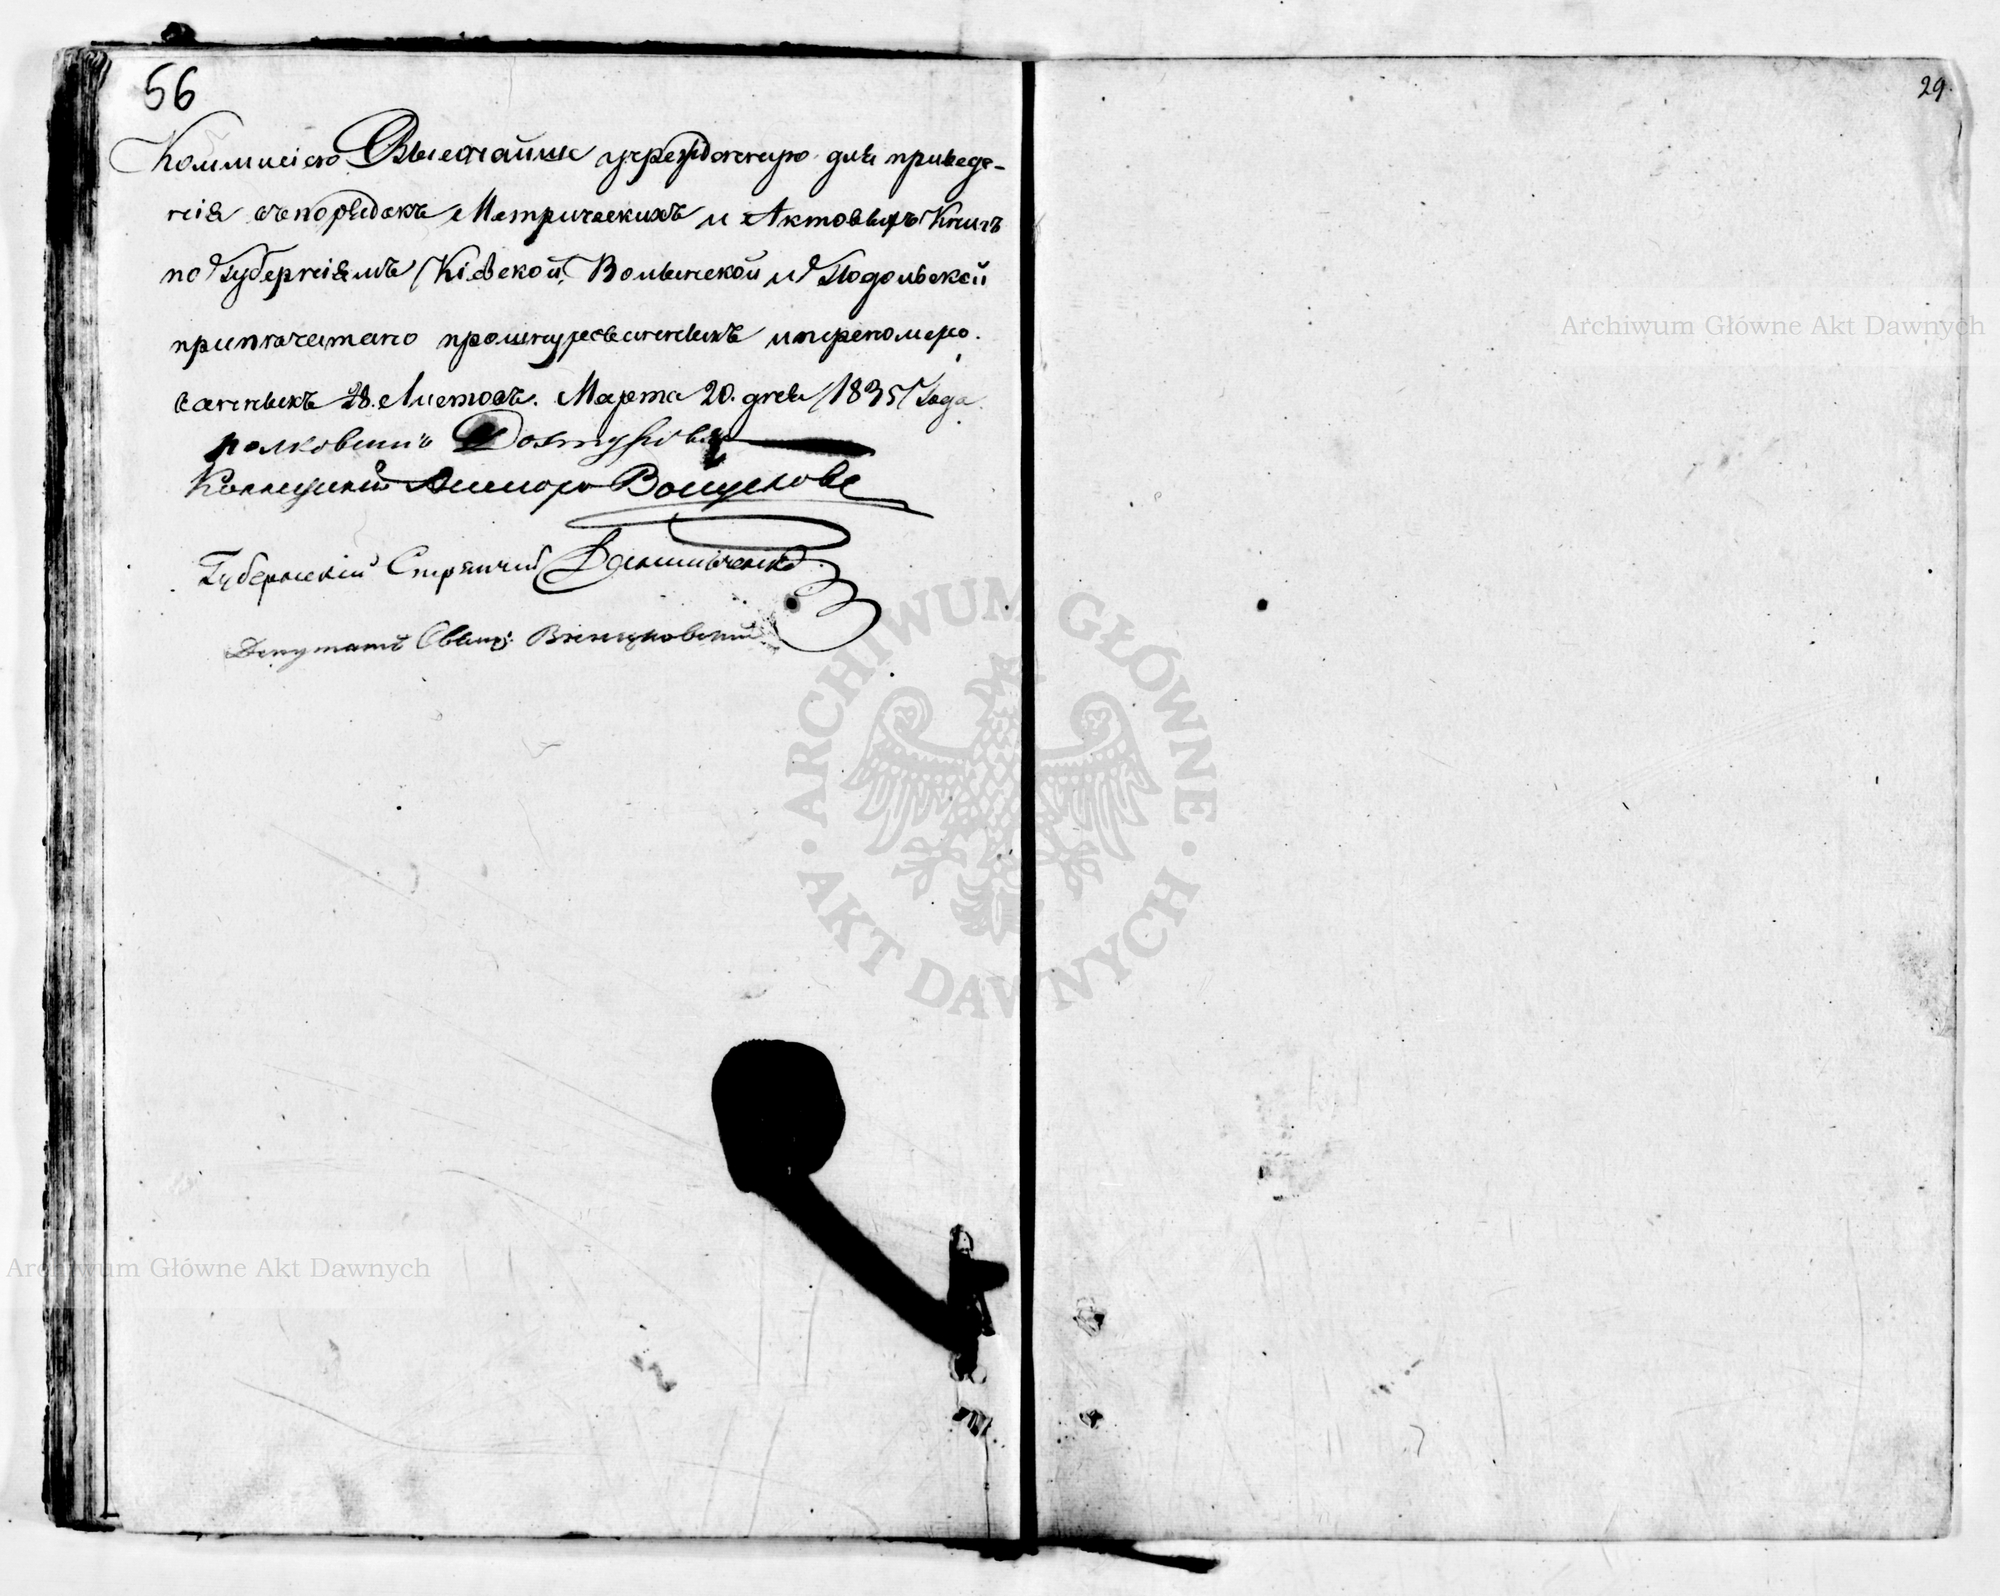 56
Коммисіею Высочайше учрежденною для приведе-
нія въ порядокъ Метрическихъ и Актовыхъ Книгъ
по Губерніямъ Кіевской, Волынской и Подольской
припечатано прошнурованныхъ и перономеро-
ванныхъ 28. Листовъ. Марта 20. дня 1835 Года.
полковникъ
Коллежский
Губернский Стряпчий
Депутатъ
29.
Archiwum Główne Akt Dawnych
ARCHIWUM GŁÓWNE AKT DAWNYCH
Archiwum Główne Akt Dawnych